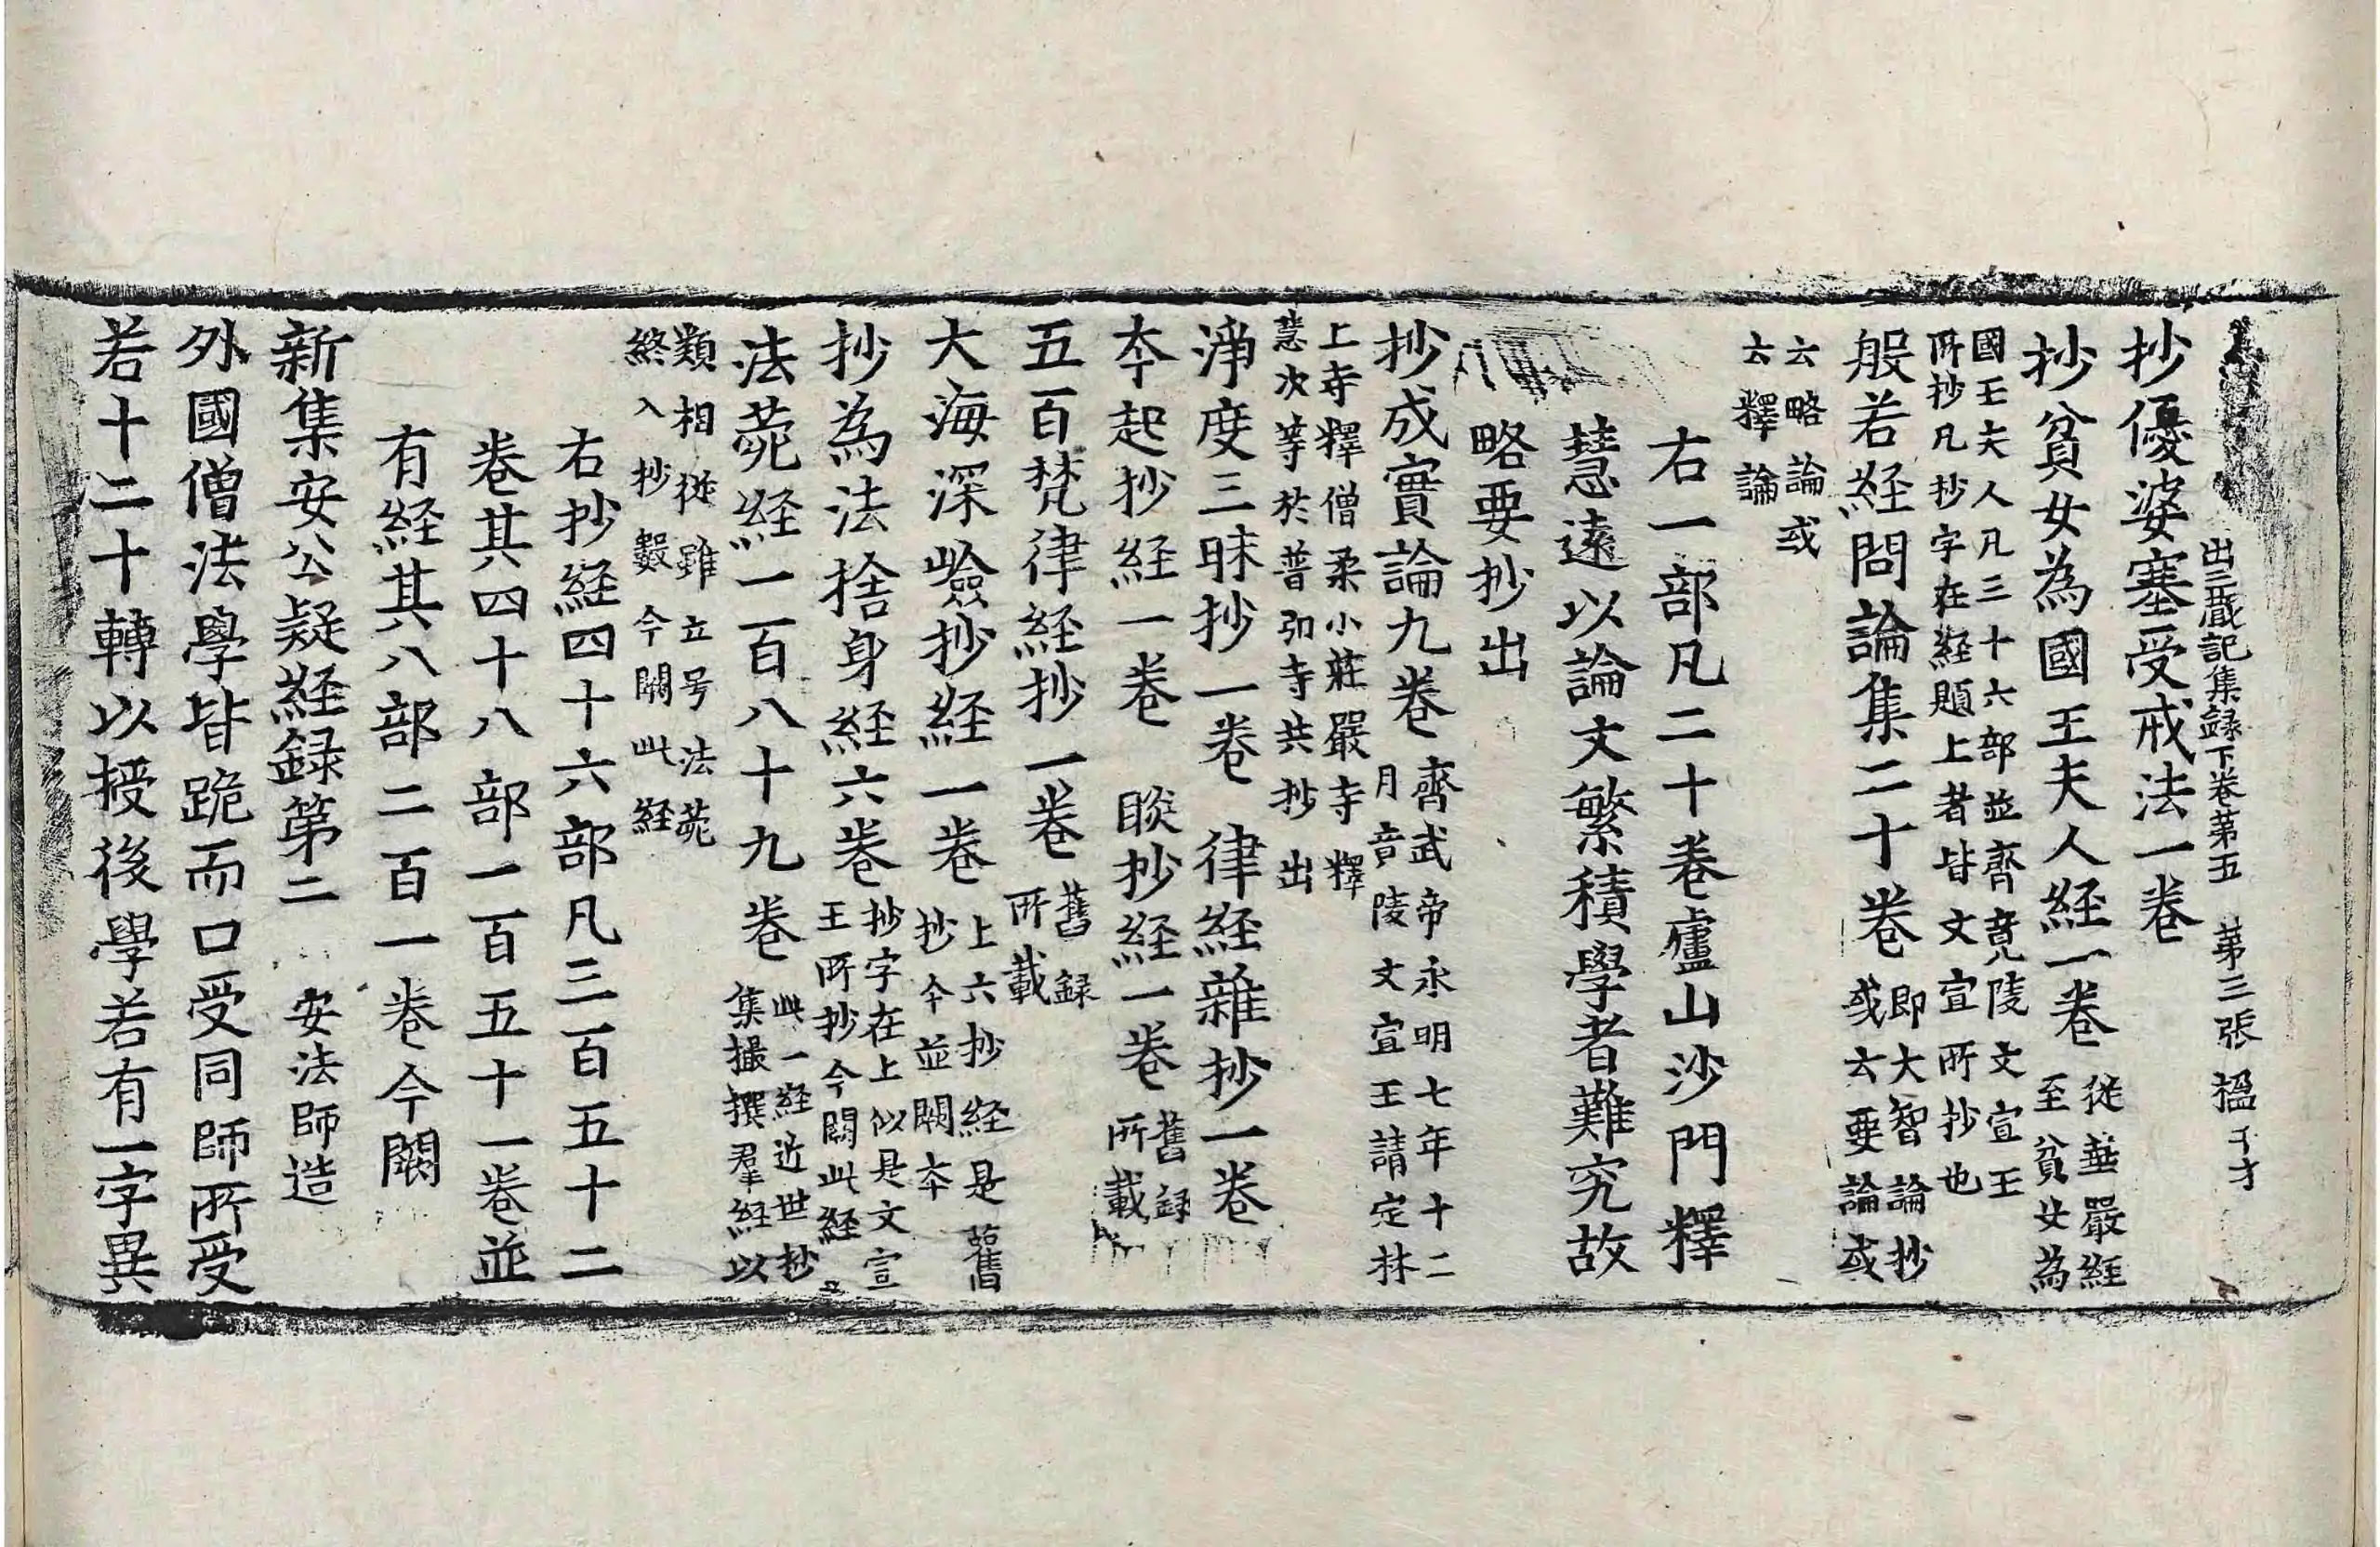 出三藏記集録下卷第五　第三張　榲
抄優婆塞受戒法一卷
抄貧女為國王夫人経一卷 從華嚴経
至貧女為
國王夫人凡三十六部並齊竟陵文宣王
所抄凡抄字在経題上者皆文宣所抄也
般若経問論集二十卷 即大智論抄
或云要論或
云略論或
云釋論
右一部凡二十卷廬山沙門釋
慧遠以論文繁積學者難究故
略要抄出
抄成實論九卷 齊武帝永明七年十二
月竟陵文宣王請定林
上寺釋僧柔小莊嚴寺釋
慧次等於普弘寺共抄出
淨度三昧抄一卷　律経雜抄一卷
本起抄経一卷　睒抄経一卷 舊録
所載
五百梵律経抄一卷 舊録
所載
大海深嶮抄経一卷 上六抄経是舊
抄今並闕本
抄為法捨身経六卷 抄字在上似是文宣
王所抄今闕此経
法菀経一百八十九卷 此一経近世抄
集撮撰羣経以
類相從雖立号法菀
終入抄數今闕此経
右抄経四十六部凡三百五十二
卷其四十八部一百五十一卷並
有経其八部二百一卷今闕
新集安公疑経録第二　安法師造
外國僧法學皆跪而口受同師所受
若十二十轉以授後學若有一字異